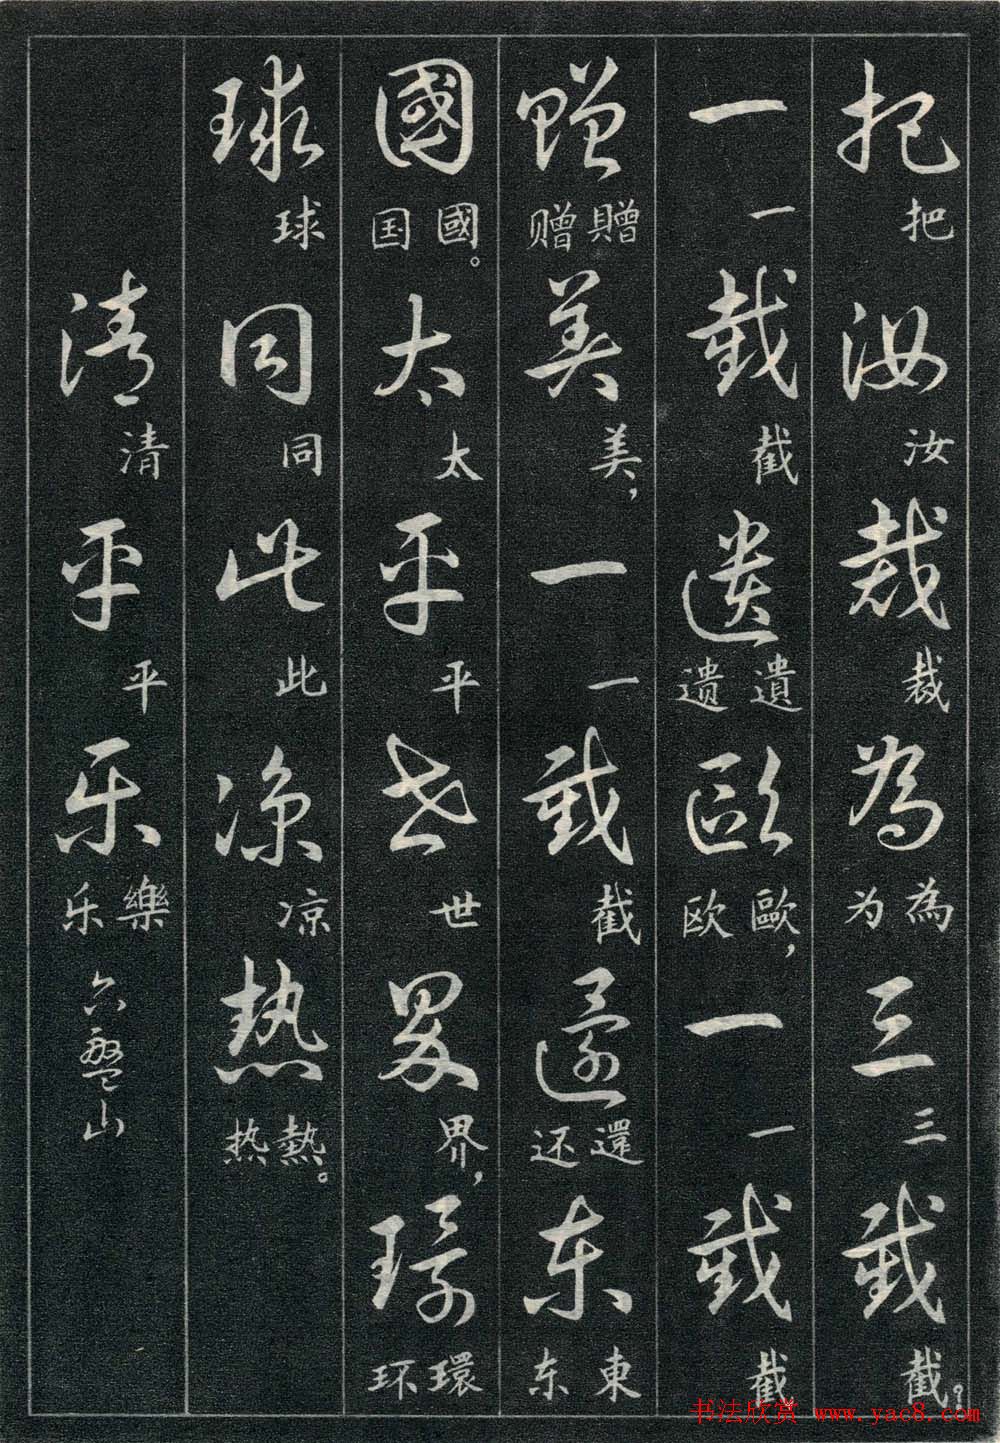 把 把 汝 汝 裁 裁 為 為 为 三 三 截 截？
一 一 截 截 遗 遺 遗 歐 歐， 欧 一 一 截 截
赠 贈 赠 美 美， 一 一 截 截 還 還 还 东 東 东
國 國。 国 太 太 平 平 世 世 界 界， 環 環 环
球 球 同 同 此 此 凉 凉 热 熱。 热
清 清 平 平 乐 樂 乐 六盤山
书法欣赏 www.yac8.com